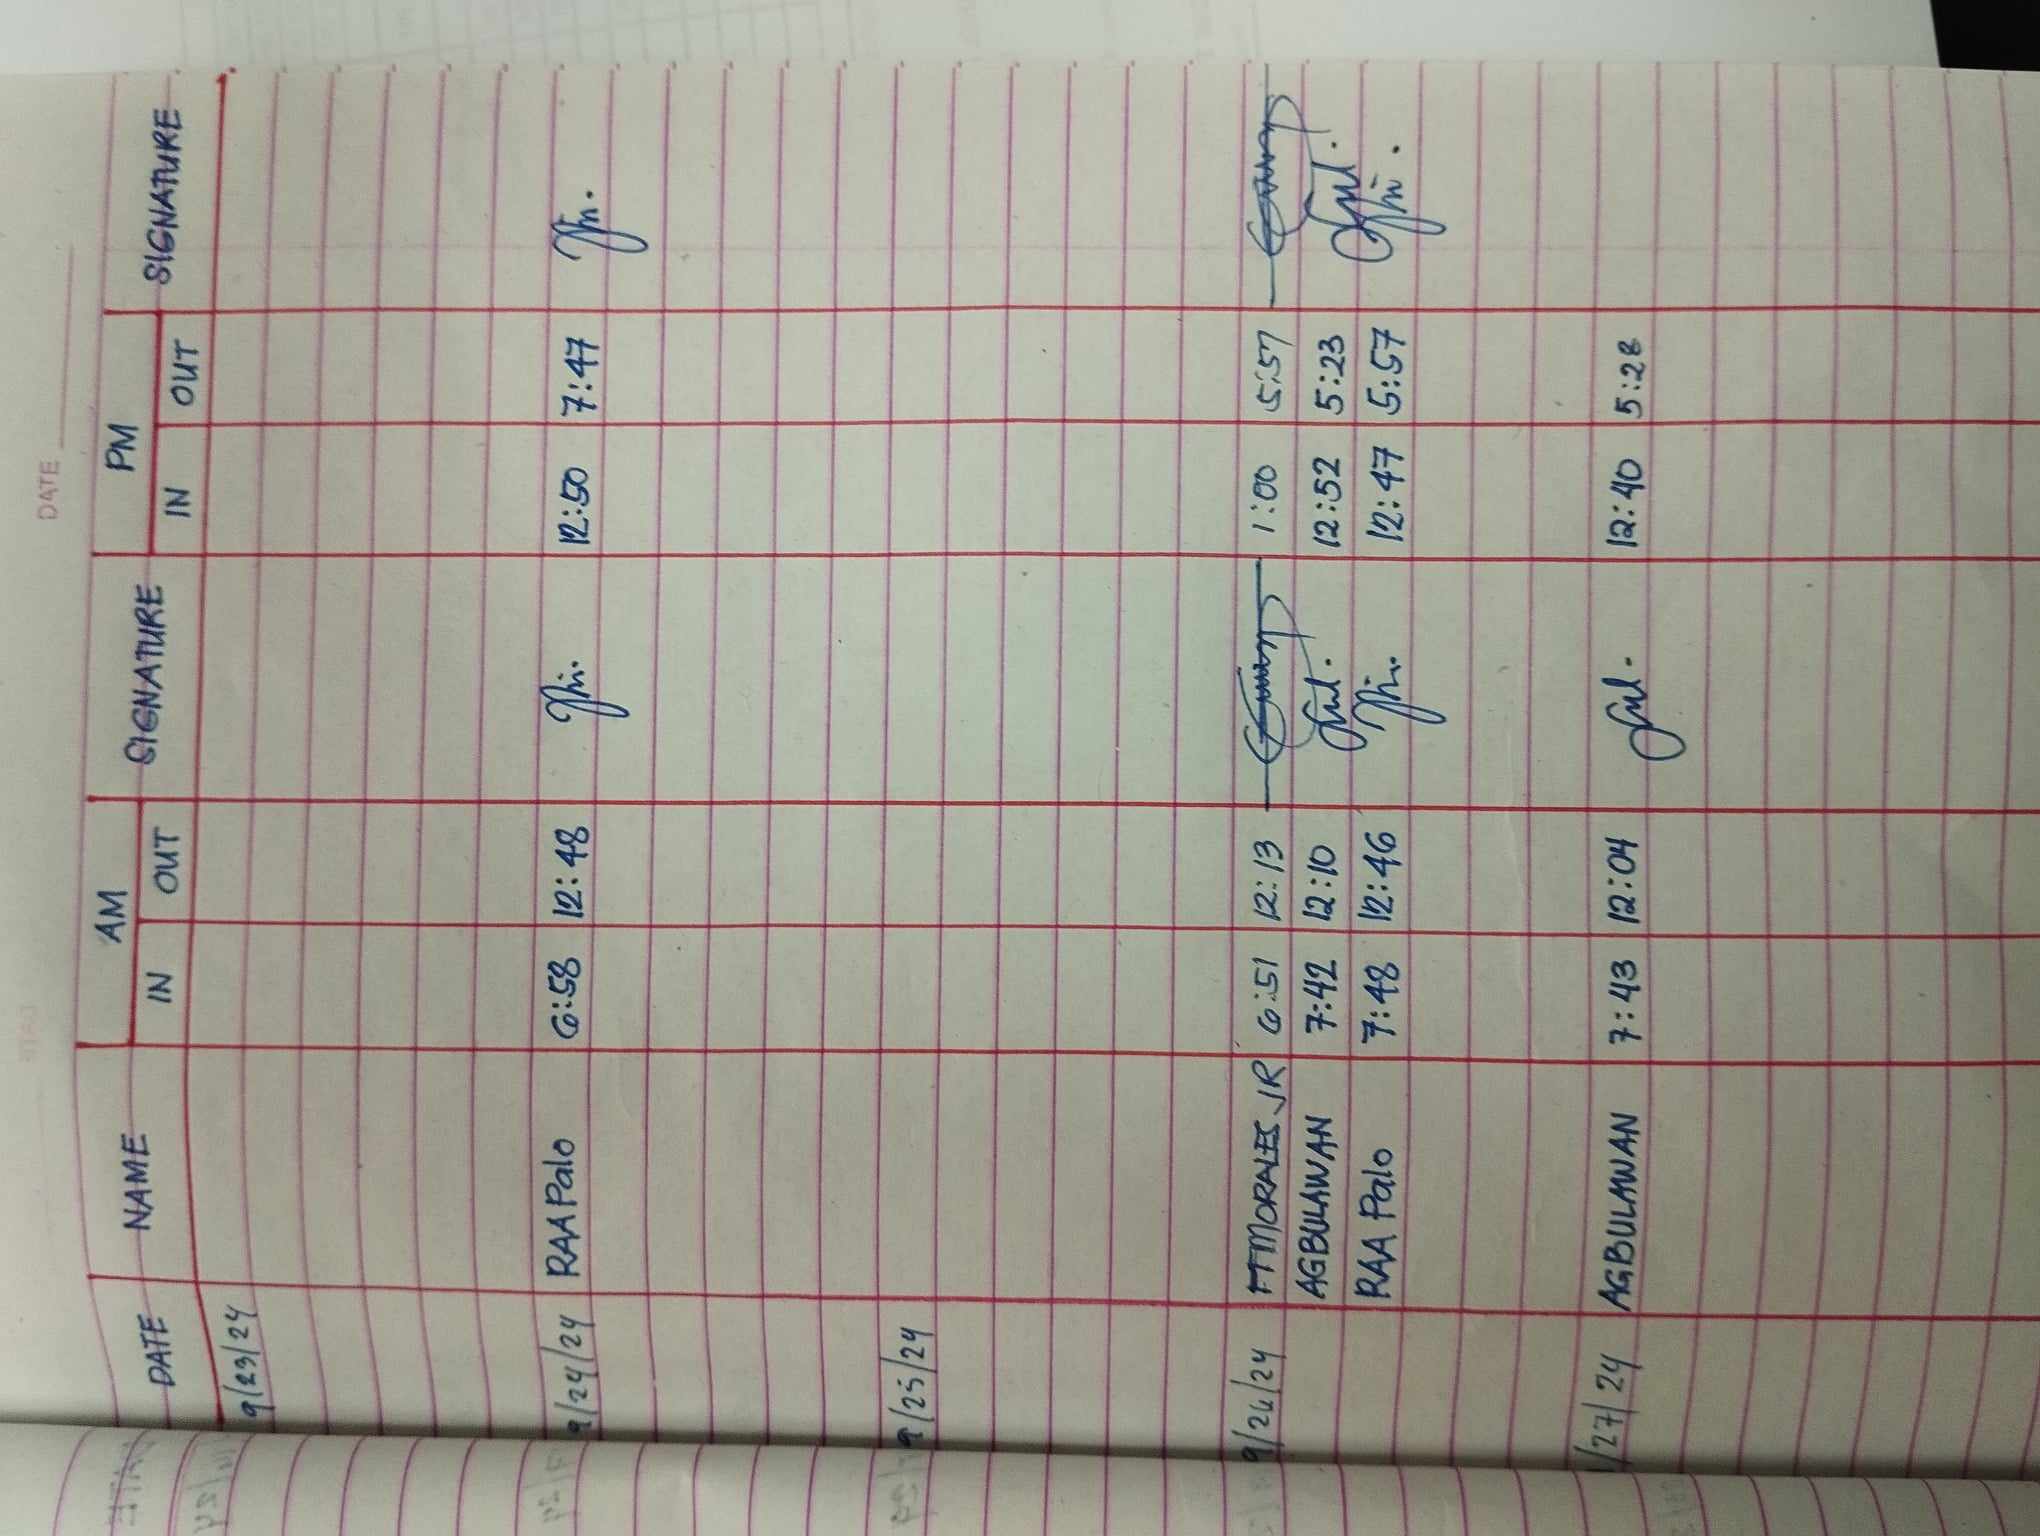 DATE
AM PM
DATE NAME IN OUT SIGNATURE IN OUT SIGNATURE
9/23/24
9/24/24 RAA Palo 6:58 12:48 12:50 7:47
9/25/24
9/26/24 FTMORALES JR 6:51 12:13 1:00 5:57
AGBULAWAN 7:42 12:10 12:52 5:23
RAA Palo 7:48 12:46 12:47 5:57
/27/24 AGBULAWAN 7:43 12:04 12:40 5:28